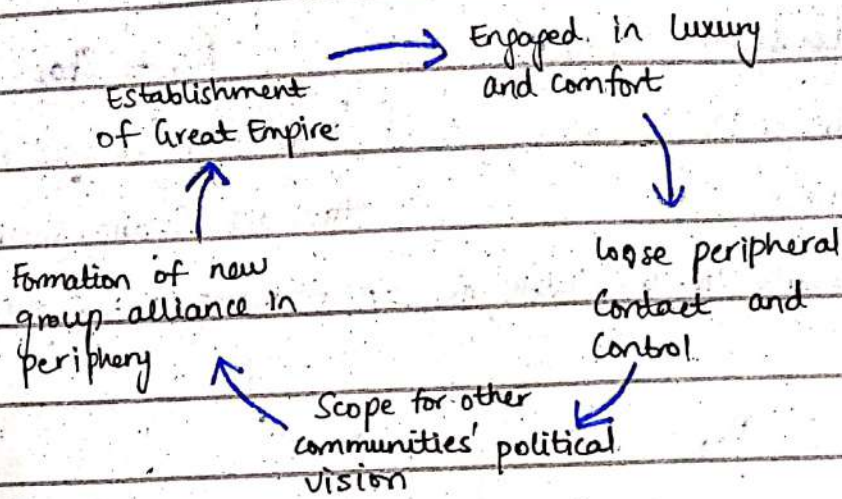 Establishment
of Great Empire
Engaged. in luxury
and comfort
loose peripheral
Contact and
Control
Scope for other
communities' political
vision
Formation of new
group alliance in
periphery